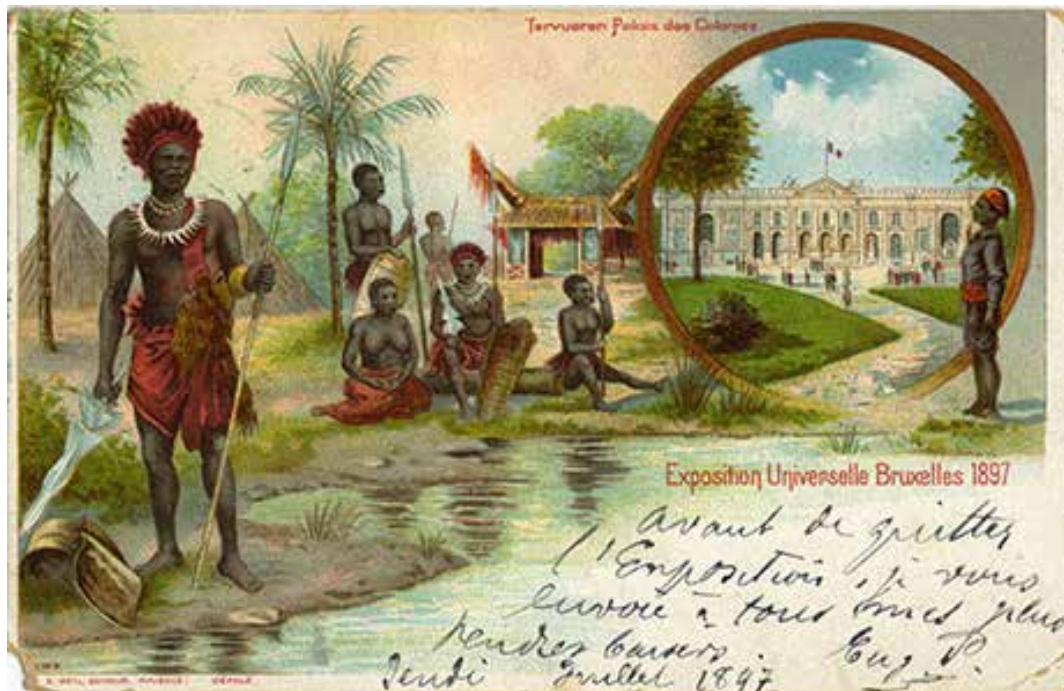 Tervueren Palais des Colonies
Exposition Universelle Bruxelles 1897
avant de quitter
l'Exposition, je vous
envoie à tous mes plus
tendres baisers. Eug. P.
Jeudi Juillet 1897